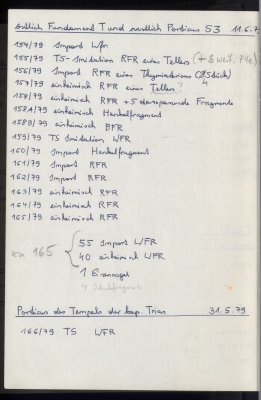 östlich Fundament T und nördlich Porticus S3 11.6.79
154/79 Import WFR
155/79 TS-Imitation RFR eines Tellers (+ 3 weit. Fr.)
156/79 Import RFR eines Thymiaterions
157/79 einheimisch RFR eines Tellers?
158/79 einheimisch RFR + 5 dazupassende Fragmente
158A/79 einheimisch Henkelfragment
158B/79 einheimisch BFR
159/79 TS Imitation WFR
160/79 Import Henkelfragment
161/79 Import RFR
162/79 Import RFR
163/79 einheimisch RFR
164/79 einheimisch RFR
165/79 einheimisch RFR
zu 165
55 Import WFR
40 einheimisch WFR
1 Eisennagel
4
Porticus des Tempels der kap. Trias 31.5.79
166/79 TS WFR